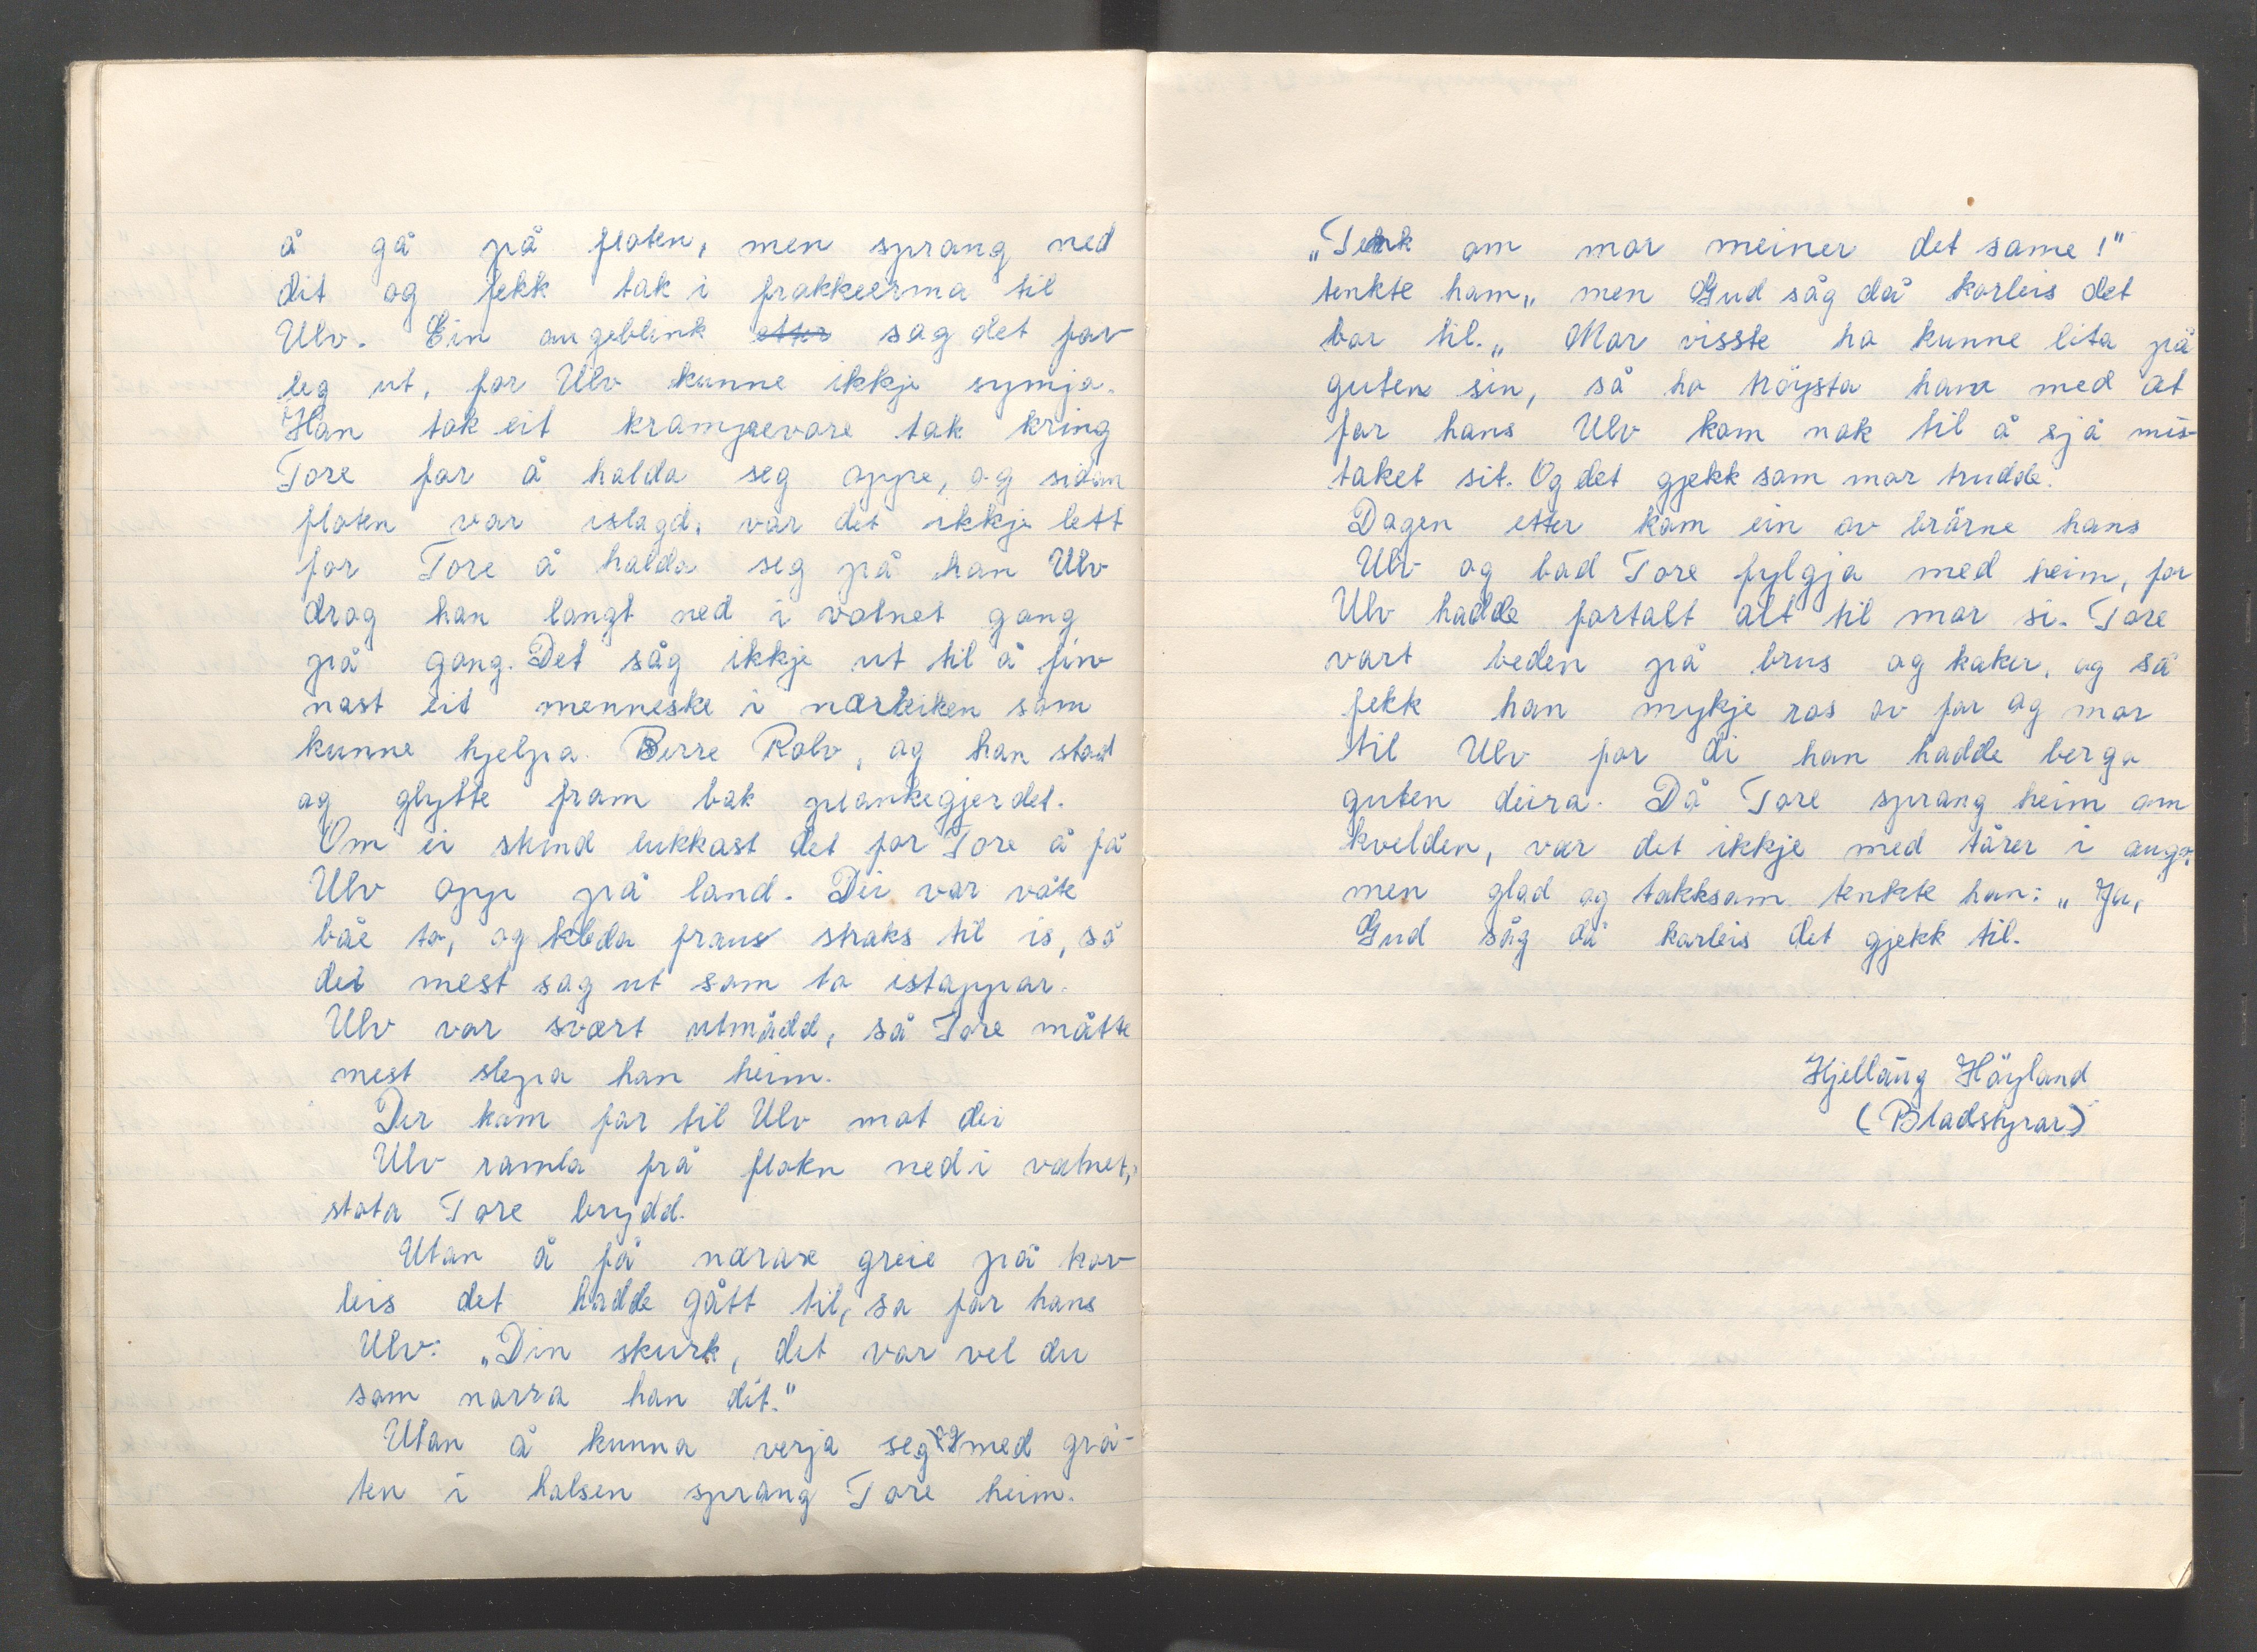 å gå på floten, men sprang ned
dit og fekk tak i frakkeerma til
Ulv. Ein augeblink etter sag det far-
leg ut, for Ulv kunne ikkje symja.
Han tok eit krampevore tak kring
Tore for å halda seg oppe, og sidan
floten var islagd, var det ikkje lett
for Tore å halda seg på han Ulv
drog han langt ned i vatnet gong
på gong. Det såg ikkje ut til å fin-
nast eit menneske i nærleiken som
kunne hjelpa. Berre Rolv, og han stod
og glytte fram bak plankegjerdet.
Om ei stund lukkast det for Tore å få
Ulv opp på land. Dei var våte
båe to, og kleda fraus straks til is, så
det mest sag ut som to istappar.
Ulv var svært utmådd, så Tore måtte
mest slepa han heim.
Der kom far til Ulv mot dei
Ulv ramla frå floten ned i vatnet,
stota Tore brydd.
Utan å få nærare greie på kor-
leis det hadde gått til, sa far hans
Ulv: „Din skurk, det var vel du
som narra han dit."
Utan å kunna verja seg og med grå-
ten i halsen sprang Tore heim.
„Tenk om mor meiner det same!"
tenkte ham„ men Gud såg då korleis det
bar til.„ Mor visste ho kunne lita på
guten sin, så ho tröysta ham med at
far hans Ulv kom nok til å sjå mis-
taket sit. Og det gjekk som mor trudde.
Dagen etter kom ein av brörne hans
Ulv og bad Tore fylgja med heim, for
Ulv hadde fortalt alt til mor si. Tore
vart beden på brus og kaker, og så
fekk han mykje ros av far og mor
til Ulv for di han hadde berga
guten deira. Då Tore sprang heim om
kvelden, var det ikkje med tårer i augo,
men glad og takksam tenkte han: „Ja,
Gud såg då korleis det gjekk til.
Kjellaug Höyland
(Bladstyrar)